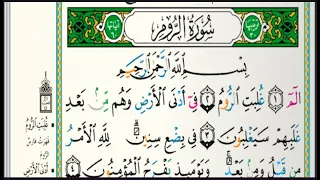 سُورَةُ الرُّومِ
بِسْمِ ٱللَّهِ ٱلرَّحْمَٰنِ ٱلرَّحِيمِ
الٓمٓ ١ غُلِبَتِ ٱلرُّومُ ٢ فِىٓ أَدْنَى ٱلْأَرْضِ وَهُم مِّنۢ بَعْدِ
غَلَبِهِمْ سَيَغْلِبُونَ ٣ فِى بِضْعِ سِنِينَ ۗ لِلَّهِ ٱلْأَمْرُ
مِن قَبْلُ وَمِنۢ بَعْدُ ۚ وَيَوْمَئِذٍ يَفْرَحُ ٱلْمُؤْمِنُونَ ٤
غُلِبَتِ الرُّومُ
قَهَرَتْ فَارِسُ
الرُّومَ
أَدْنَى الْأَرْضِ